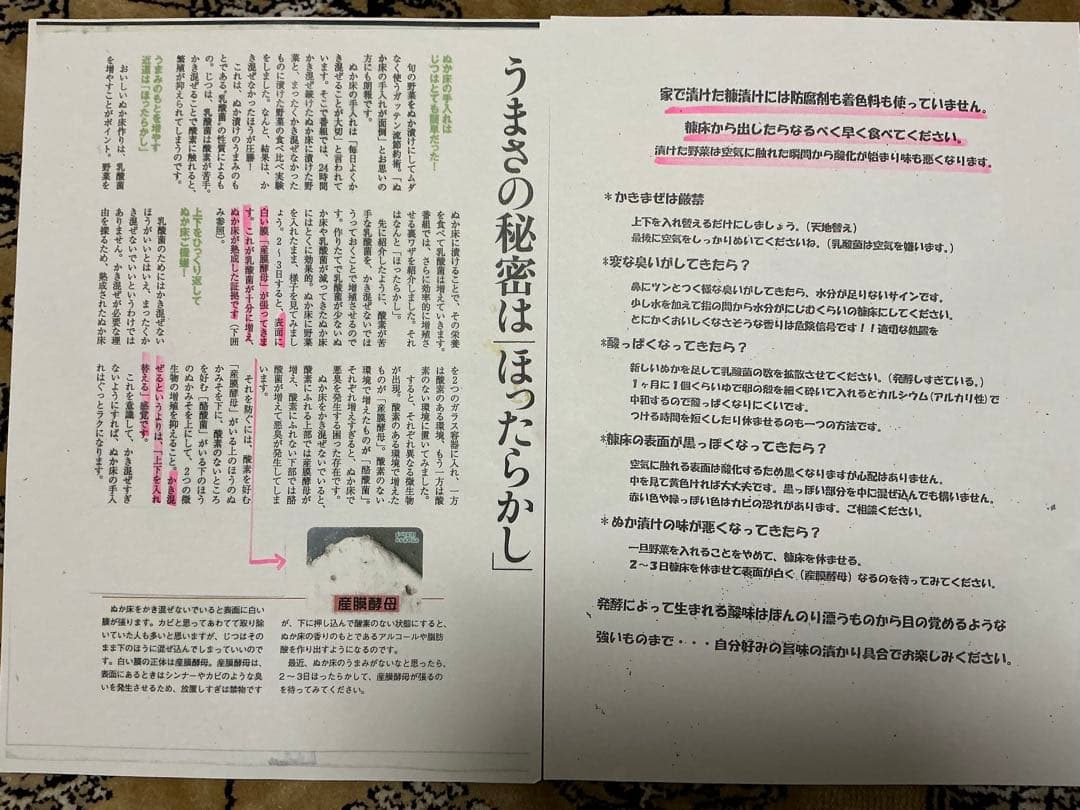 うまさの秘密は「ほったらかし」
ぬか床の手入れは
じつはとても簡単だった！
旬の野菜をぬか漬けにしてムダ
なく使うガッテン流節約術。「ぬ
か床の手入れが面倒」とお思いの
方にも朗報です。
ぬか床の手入れは「毎日よくか
き混ぜることが大切」と言われて
います。そこで番組では、24時間
かき混ぜ続けたぬか床に漬けた野
菜と、まったくかき混ぜなかった
ものに漬けた野菜の食べ比べ実験
をしました。なんと、結果は、か
き混ぜなかったほうが圧勝！
これは、ぬか漬けのうまみのも
とである〝乳酸菌〟の性質によるも
の。じつは、乳酸菌は酸素が苦手。
かき混ぜることで酸素に触れると、
繁殖が抑えられてしまうのです。
うまみのもとを増やす
近道は「ほったらかし」
おいしいぬか床作りは、乳酸菌
を増やすことがポイント。野菜を
ぬか床に漬けることで、その栄養
を食べて乳酸菌は増えていきます。
番組では、さらに効率的に増殖さ
せる裏ワザを紹介しました。それ
はなんと「ほったらかし」。
先に紹介したように、酸素が苦
手な乳酸菌を、かき混ぜないでほ
うっておくことで増殖させるので
す。作りたてで乳酸菌が少ないぬ
か床や乳酸菌が減ってきたぬか床
にはとくに効果的。ぬか床に野菜
を入れたまま、様子を見てみまし
ょう。2〜3日すると、表面に
白い膜「産膜酵母」が張ってきま
す。これが乳酸菌が十分に増え、
ぬか床が熟成した証拠です（下囲
み参照）。
上下をひっくり返して
ぬか床ご機嫌！
乳酸菌のためにはかき混ぜない
ほうがいいとはいえ、まったくか
き混ぜないでいいというわけでは
ありません。かき混ぜが必要な理
由を探るため、熟成されたぬか床
を2つのガラス容器に入れ、一方
は酸素のある環境、もう一方は酸
素のない環境に置いてみました。
すると、それぞれ異なる微生物
が出現。酸素のある環境で増えた
ものが「産膜酵母」。酸素のない
環境で増えたものが「酪酸菌」。
それぞれ増えすぎると、ぬか床で
悪臭を発生する困った存在です。
ぬか床をかき混ぜないでいると、
酸素にふれる上部では産膜酵母が
増え、酸素にふれない下部では酪
酸菌が増えて悪臭が発生してしま
います。
それを防ぐには、酸素を好む
「産膜酵母」がいる上のほうのぬ
かみそを下に、酸素のないところ
を好む「酪酸菌」がいる下のほう
のぬかみそを上にして、2つの微
生物の増殖を抑えること。かき混
ぜるというよりは、「上下を入れ
替える」感覚です。
これを意識して、かき混ぜすぎ
ないようにすれば、ぬか床の手入
れはぐっとラクになります。
産膜酵母
ぬか床をかき混ぜないでいると表面に白い
膜が張ります。カビと思ってあわてて取り除
いていた人も多いと思いますが、じつはその
まま下のほうに混ぜ込んでしまっていいので
す。白い膜の正体は産膜酵母。産膜酵母は、
表面にあるときはシンナーやカビのような臭
いを発生させるため、放置しすぎは禁物です
が、下に押し込んで酸素のない状態にすると、
ぬか床の香りのもとであるアルコールや脂肪
酸を作り出すようになるのです。
最近、ぬか床のうまみがないなと思ったら、
2〜3日ほったらかして、産膜酵母が張るの
を待ってみてください。
家で漬けた糠漬けには防腐剤も着色料も使っていません。
糠床から出したらなるべく早く食べてください。
漬けた野菜は空気に触れた瞬間から酸化が始まり味も悪くなります。
＊かきまぜは厳禁
上下を入れ替えるだけにしましょう。（天地替え）
最後に空気をしっかりぬいてくださいね。（乳酸菌は空気を嫌います。）
＊変な臭いがしてきたら？
鼻にツンとつく様な臭いがしてきたら、水分が足りないサインです。
少し水を加えて指の間から水分がにじむくらいの糠床にしてください。
とにかくおいしくなさそうな香りは危険信号です！！適切な処置を
＊酸っぱくなってきたら？
新しいぬかを足して乳酸菌の数を拡散させてください。（発酵しすぎている。）
1ヶ月に1個くらいゆで卵の殻を細く砕いて入れるとカルシウム（アルカリ性）で
中和するので酸っぱくなりにくいです。
つける時間を短くしたり休ませるのも一つの方法です。
＊糠床の表面が黒っぽくなってきたら？
空気に触れる表面は酸化するため黒くなりますが心配はありません。
中を見て黄色ければ大丈夫です。黒っぽい部分を中に混ぜ込んでも構いません。
赤い色や緑っぽい色はカビの恐れがあります。ご相談ください。
＊ぬか漬けの味が悪くなってきたら？
一旦野菜を入れることをやめて、糠床を休ませる。
2〜3日糠床を休ませて表面が白く（産膜酵母）なるのを待ってみてください。
発酵によって生まれる酸味はほんのり漂うものから目の覚めるような
強いものまで・・・自分好みの旨味の漬かり具合でお楽しみください。